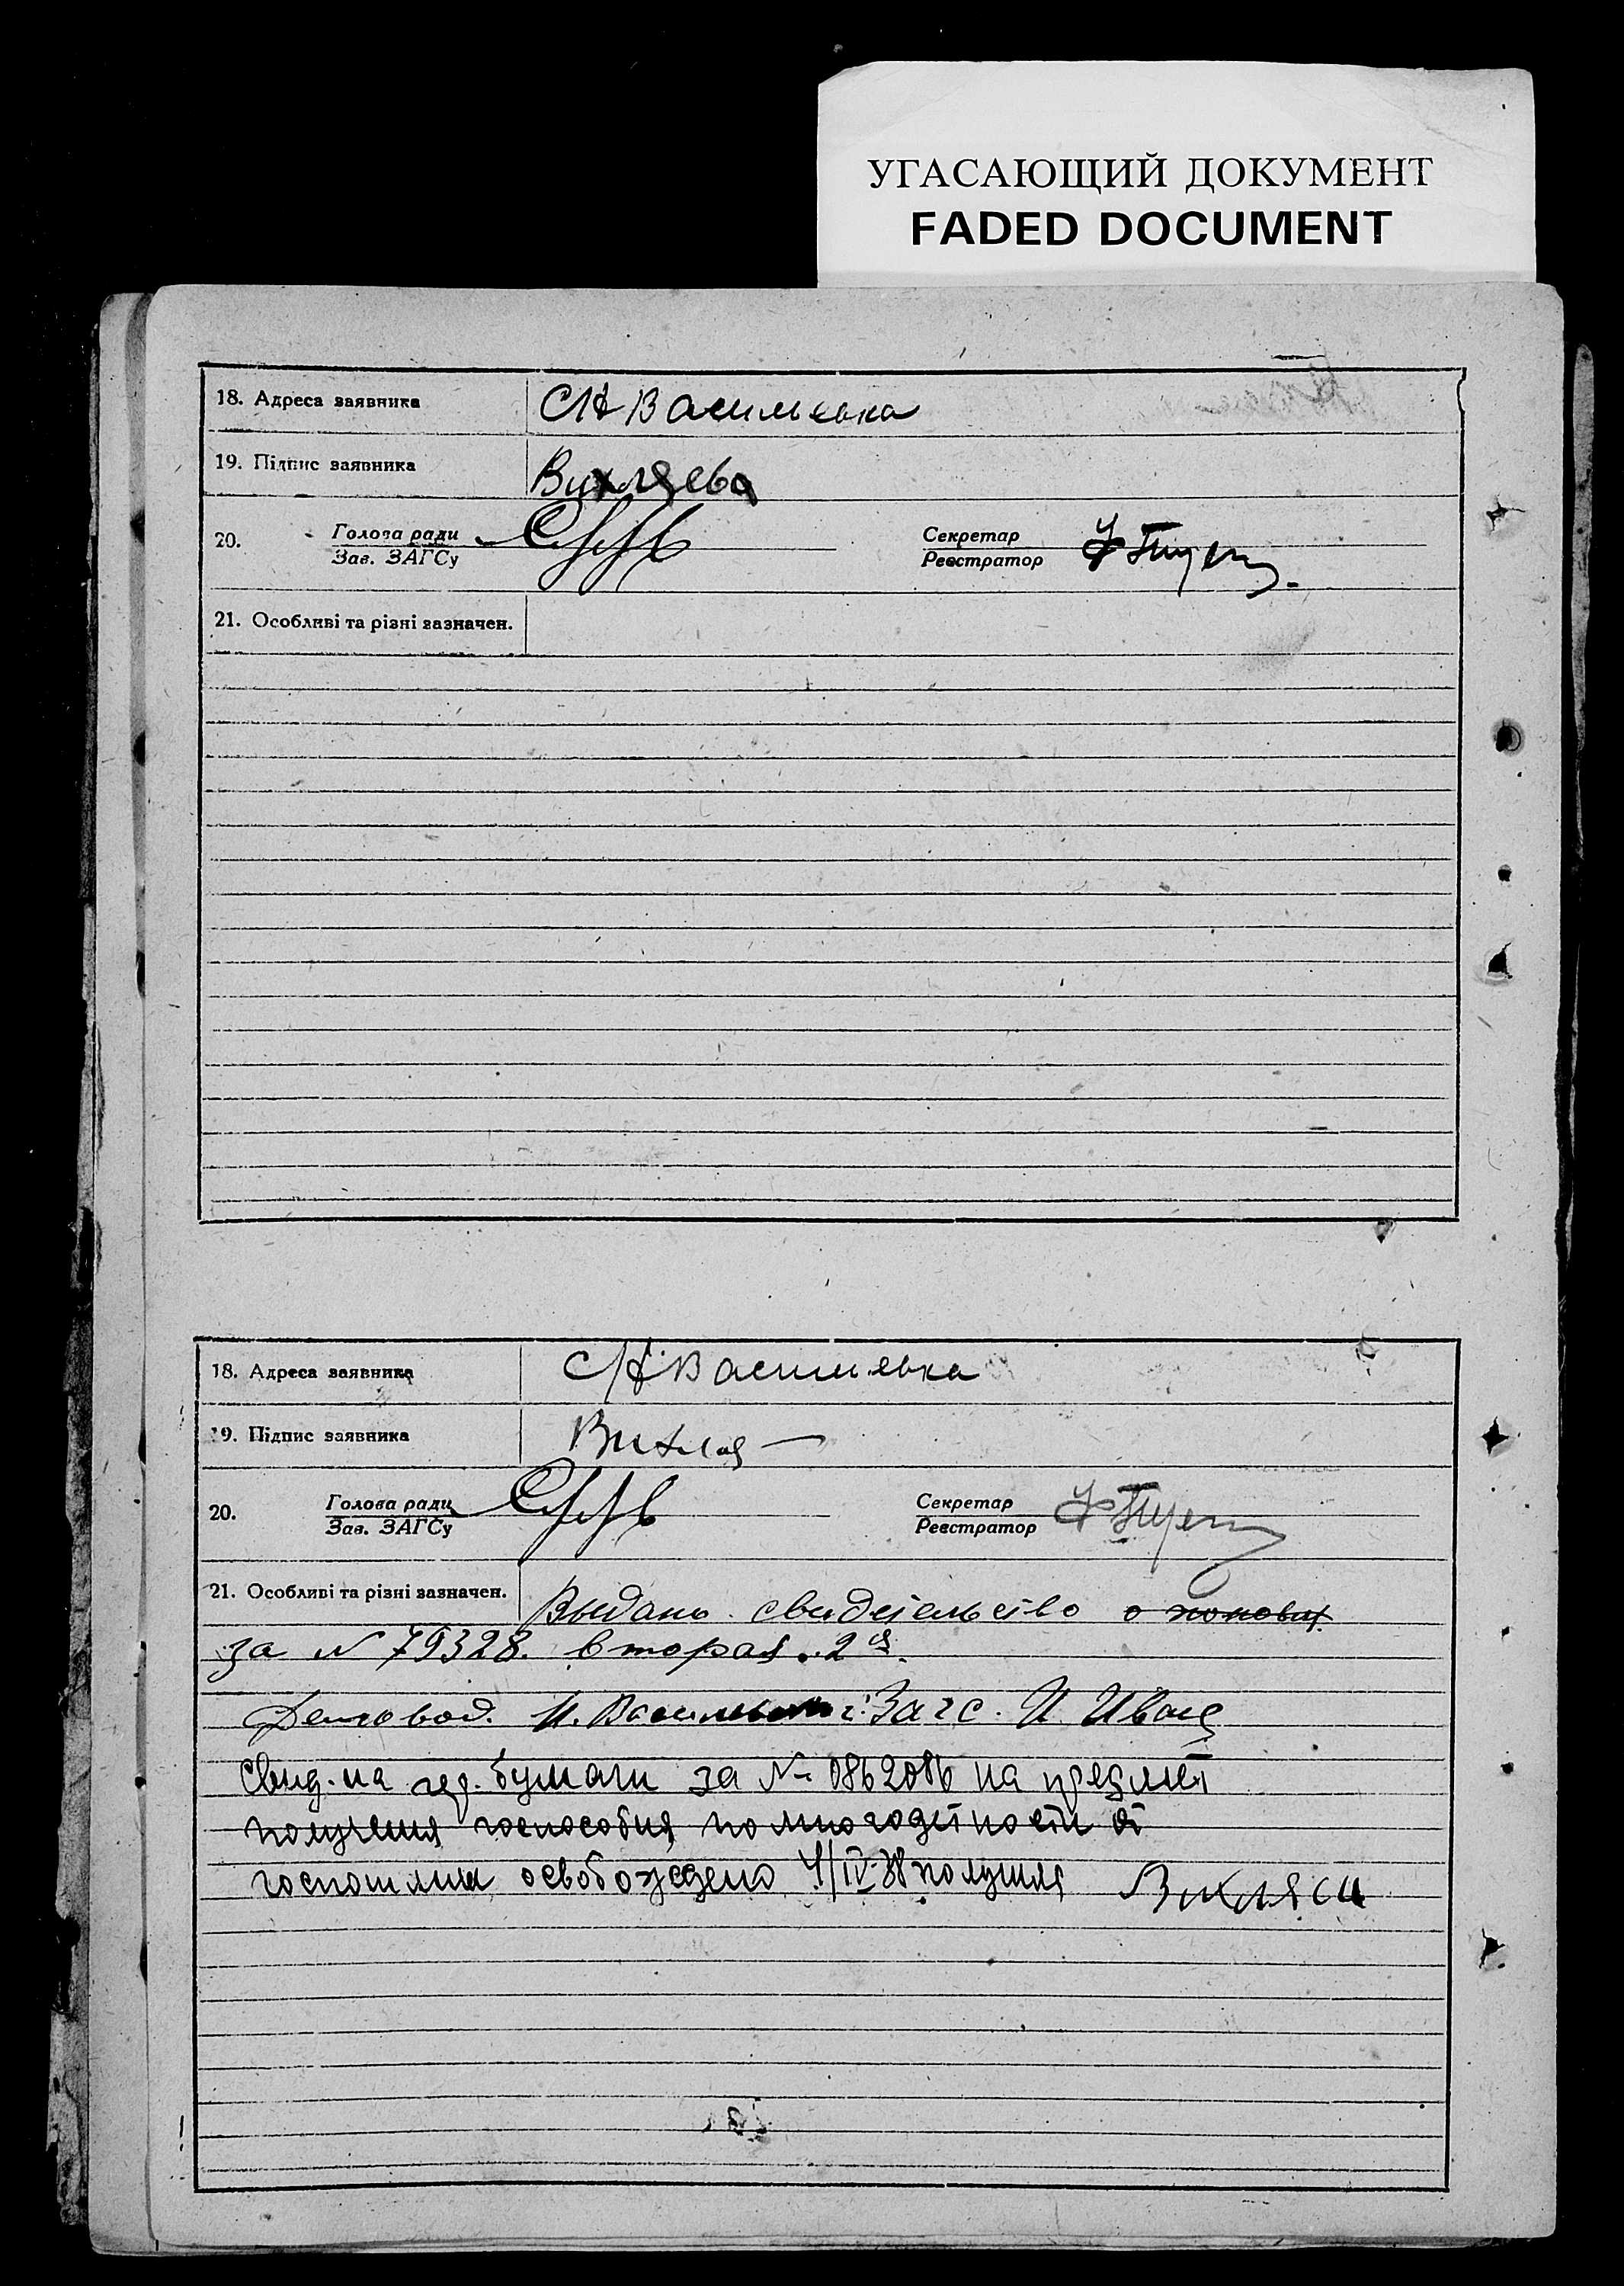 УГАСАЮЩИЙ ДОКУМЕНТ
FADED DOCUMENT
18. Адреса заявника
СН Васильевка
19. Підпис заявника
Вихляева
20. Голова ради
Зав. ЗАГСу
Секретар
Реєстратор
21. Особливі та різні зазначен.
18. Адреса заявника
СН Васильевка
19. Підпис заявника
Вихля
20. Голова ради
Зав. ЗАГСу
Секретар
Реєстратор
21. Особливі та різні зазначен.
Выдано свидетельство о
за N 79328. вторая. 2я.
Деловод. Н. Загс. И
Свид. на гер. бумаги за № 0862086 на предмет
получения госпособия по многодетности от
госпошлин освобождено /IV-38 получил